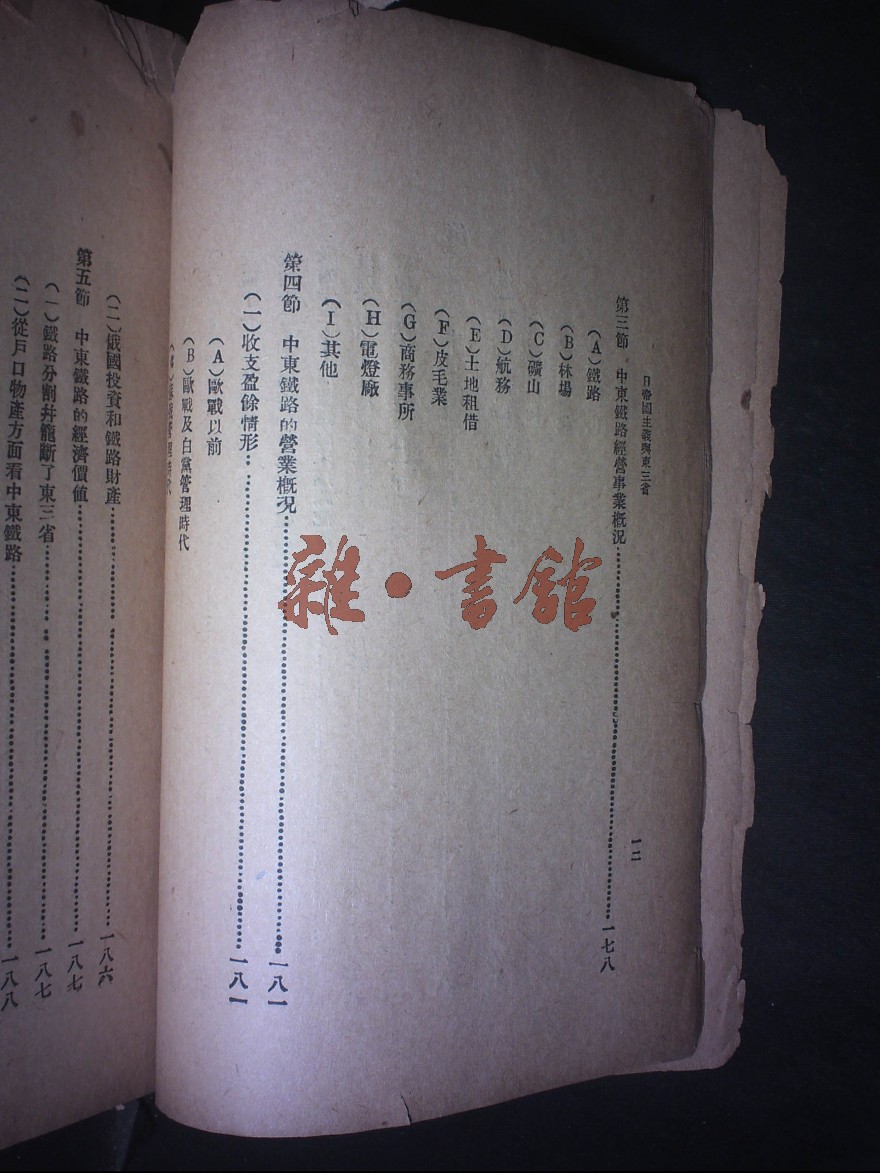 日帝國主義與東三省
一二
第三節　中東鐵路經營事業概況……一七八
（A）鐵路
（B）林場
（C）礦山
（D）航務
（E）土地租借
（F）皮毛業
（G）商務事所
（H）電燈廠
（I）其他
第四節　中東鐵路的營業概況……一八一
（一）收支盈餘情形……一八一
（A）歐戰以前
（B）歐戰及白黨管理時代
（二）俄國投資和鐵路財產……一八六
第五節　中東鐵路的經濟價值……一八七
（一）鐵路分割幷籠斷了東三省……一八七
（二）從戶口物產方面看中東鐵路……一八八
雜・書館